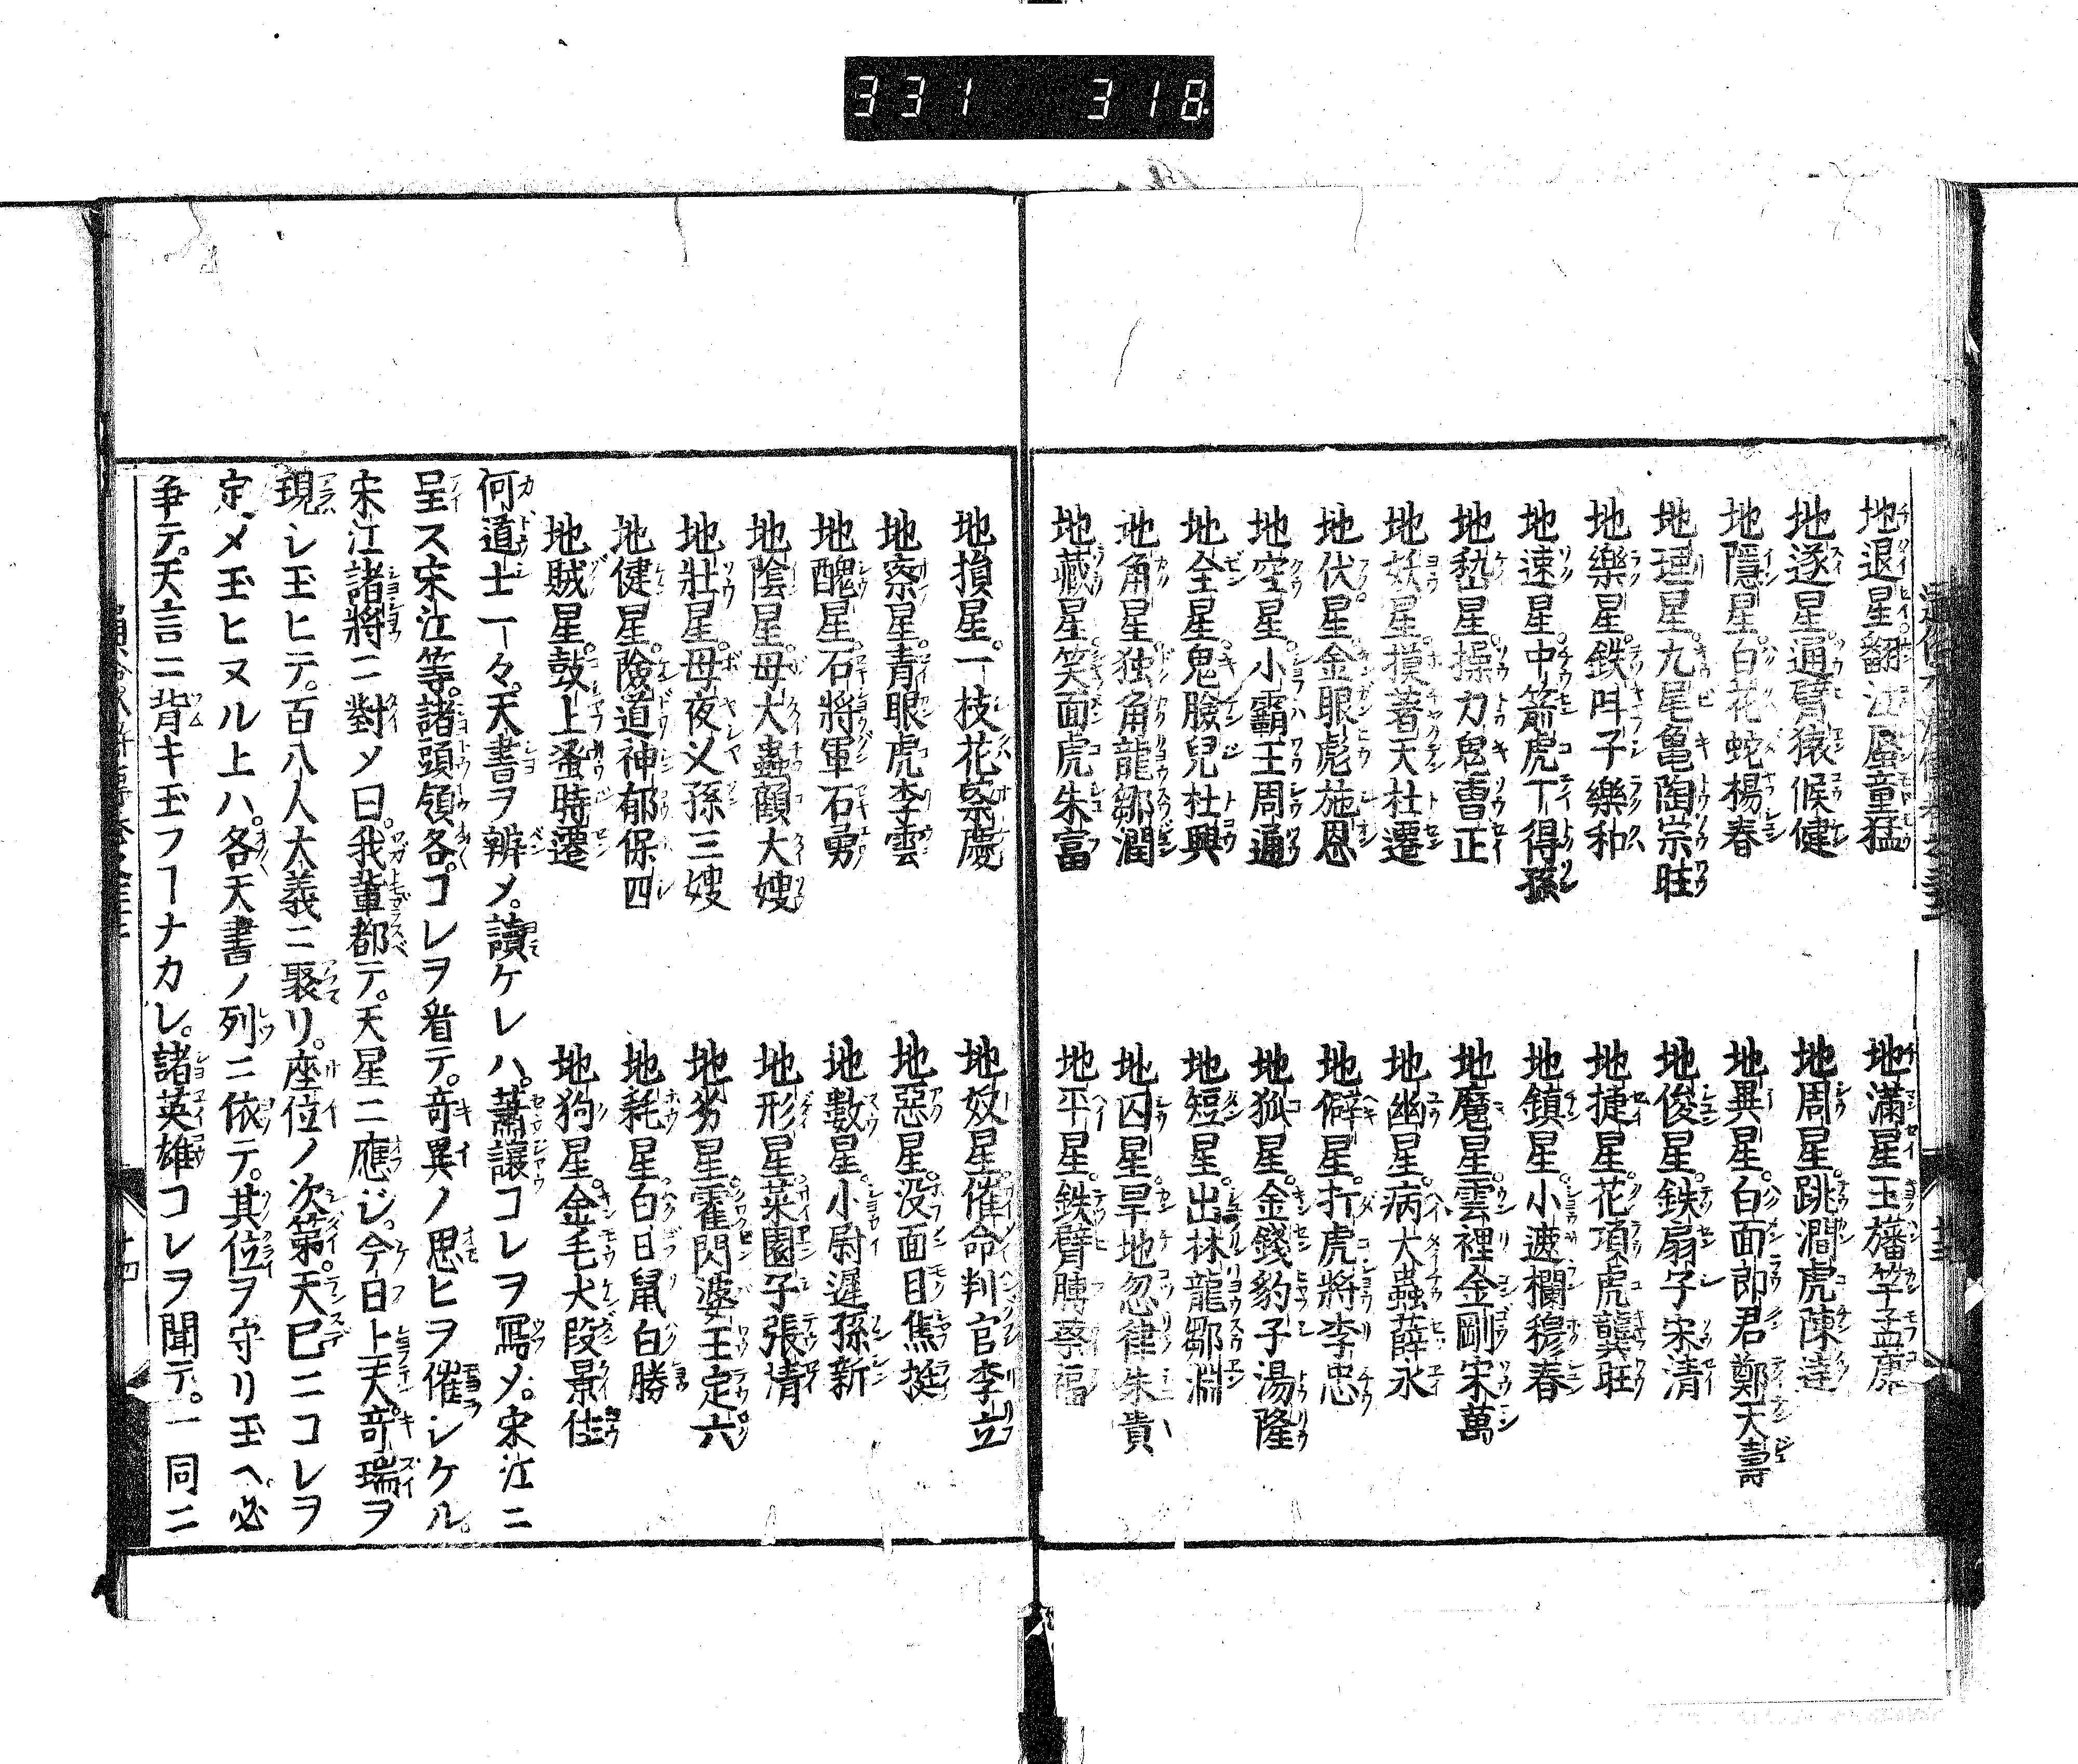 331 318
地退星翻江蜃童猛 地滿星玉旛竿孟康
地遂星通臂猿候健 地周星。跳澗虎陳達
地隱星。白花蛇楊春 地異星。白面郎君鄭天壽
地理星九尾亀陶宗旺 地俊星。鉄扇子宋清
地樂星。鉄叫子樂和 地捷星。花項虎龔旺
地速星。中箭虎丁得孫 地鎮星。小遮欄穆春
地嵆星。操刀鬼曹正 地魔星。雲裡金剛宋萬
地妖星。摸著天杜遷 地幽星。病大蟲薛永
地伏星金眼彪施恩 地僻星。打虎將李忠
地空星。小霸王周通 地狐星。金錢豹子湯隆
地全星。鬼臉兒杜興 地短星。出林龍鄒淵
地角星。独角龍鄒潤 地囚星旱地忽律朱貴
地藏星。笑面虎朱富 地平星。鉄臂膊蔡福
地損星。一枝花蔡慶 地奴星。催命判官李立
地察星。青眼虎李雲 地惡星。没面目焦挺
地醜星。石將軍石勇 地数星。小尉遲孫新
地陰星。母大蟲顧大嫂 地形星。菜園子張清
地壯星。母夜叉孫三嫂 地劣星。霍閃婆王定六
地健星。險道神郁保四 地耗星白日鼠白勝
地賊星。鼓上蚤時遷 地狗星。金毛犬段景住
何道士一々。天書ヲ辨メ。讀ケレハ。蕭讓コレヲ寫メ。宋江ニ
呈ス宋江等。諸頭領各。コレヲ看テ。竒異ノ思ヒヲ催シケル。
宋江諸將ニ對メ曰。我輩都テ。天星ニ應ジ。今日上天竒瑞ヲ
現シ玉ヒテ。百八人大義ニ聚リ。座位ノ次第。天已ニコレヲ
定メ玉ヒヌル上ハ。各天書ノ列ニ依テ。其位ヲ守リ玉ヘ。必
爭テ。天言ニ背キ玉フーナカレ。諸英雄コレヲ聞テ。一同ニ